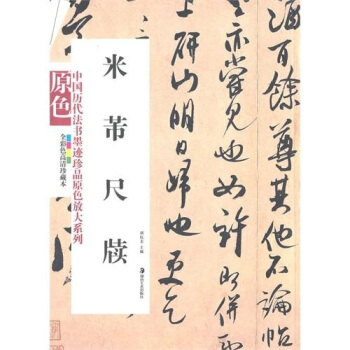 米芾尺牍
原色
中国历代法书墨迹珍品原色放大系列
全彩色高清珍藏本
主编
百餘尊其他不論帖
亦嘗見也如許即併
上研山明日歸也更乞